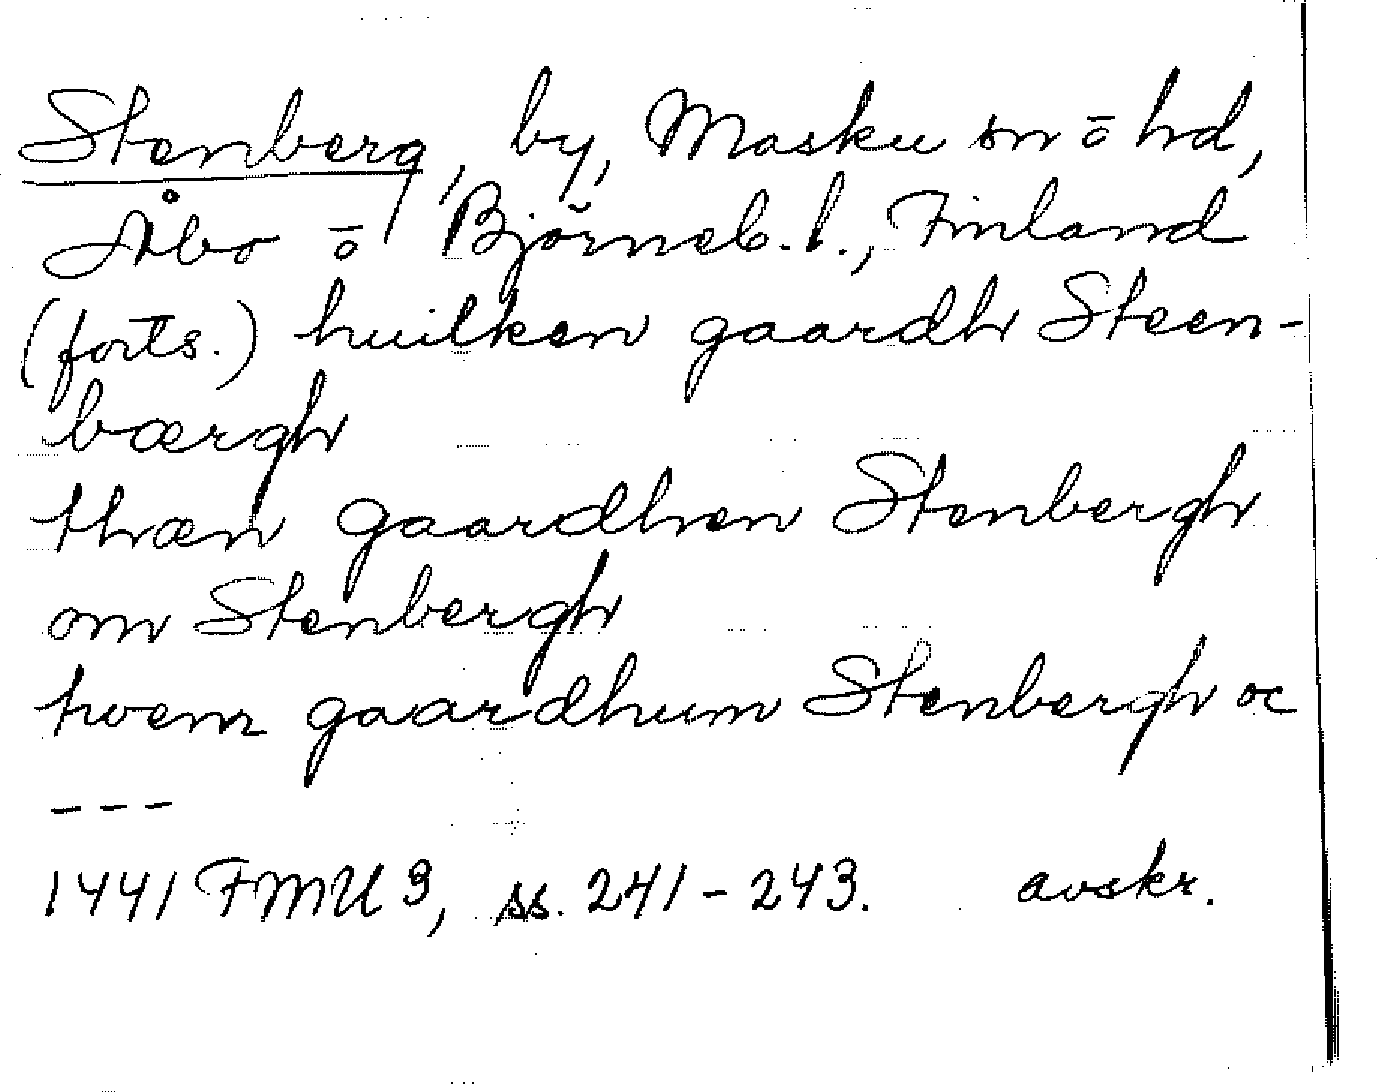 Stenberg, by, Masku sn o hd,
Åbo o Björneb. l., Finland
(forts.) huilken gaardh Steen-
bærgh
thæn gaardhen Stenbergh
om Stenbergh
twem gaardhum Stenbergh oc
---
1441 FMU 3, ss. 241-243. avskr.